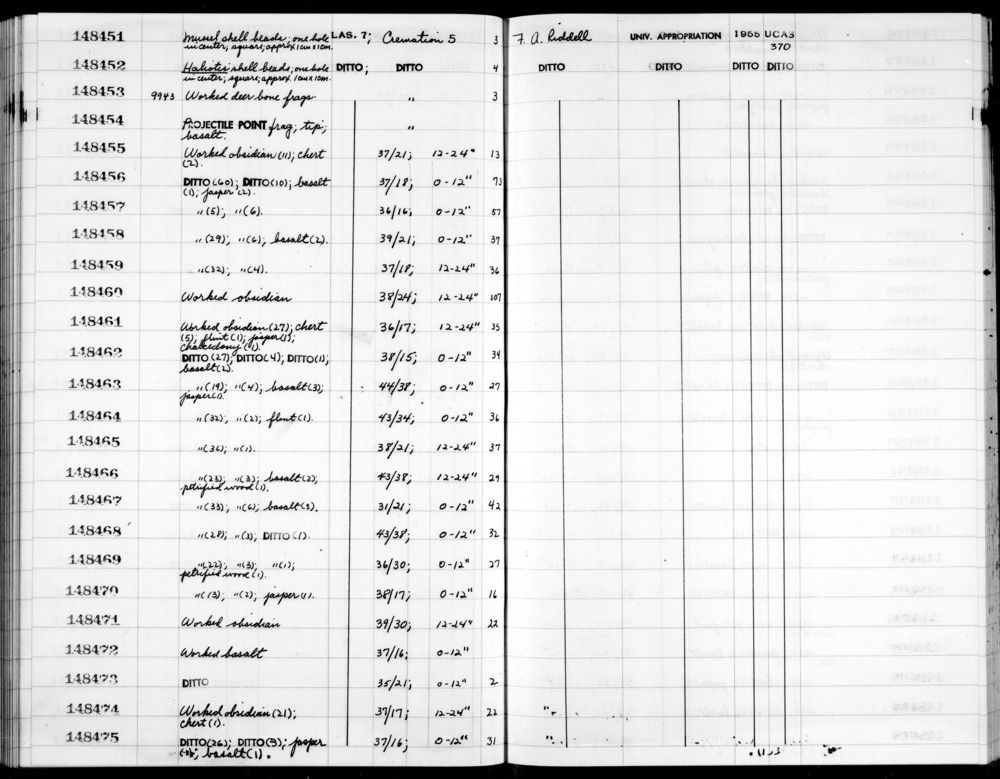 148451 Mussel shell beads; one hole LAS. 7; Cremation 5 3 F. A. Riddell UNIV. APPROPRIATION 1955 UCAS
in center; square; approx 1cm x 1cm. 370
148452 Haliotis shell beads; one hole DITTO; DITTO 4 DITTO DITTO DITTO DITTO
in center; square; approx. 1cm x 1cm.
148453 9943 Worked deer bone frags. " 3
148454 PROJECTILE POINT frag; tip; "
basalt.
148455 Worked obsidian (11); chert 37/21; 12-24" 13
(2).
148456 DITTO (60); DITTO (10); basalt 37/18; 0-12" 73
(1); jasper (2).
148457 " (51); " (6). 36/16; 0-12" 57
148458 " (29); " (6); basalt (2). 39/21; 0-12" 37
148459 " (32); " (4). 37/18; 12-24" 36
148460 Worked obsidian 38/24; 12-24" 107
148461 Worked obsidian (27); chert 36/17; 12-24" 35
(5); flint (1); jasper (1);
chalcedony (1).
148462 DITTO (27); DITTO (4); DITTO (1); 38/15; 0-12" 34
basalt (2).
148463 " (19); " (4); basalt (3); 44/38; 0-12" 27
jasper (1).
148464 " (32), " (2); flint (1). 43/34; 0-12" 36
148465 " (36); " (1). 38/21; 12-24" 37
148466 " (23); " (3); basalt (2); 43/38; 12-24" 29
petrified wood (1).
148467 " (33); " (6); basalt (3). 31/21; 0-12" 42
148468 " (28); " (3); DITTO (1). 43/38; 0-12" 32
148469 " (22); " (3); " (1); 36/30; 0-12" 27
petrified wood (1).
148470 " (13); " (2); jasper (1). 38/17; 0-12" 16
148471 Worked obsidian 39/30; 12-24" 22
148472 Worked basalt 37/16; 0-12"
148473 DITTO 35/21; 0-12" 2
148474 Worked obsidian (21); 37/17; 12-24" 22 "
chert (1).
148475 DITTO (26); DITTO (3); jasper 37/16; 0-12" 31 "
basalt (1).